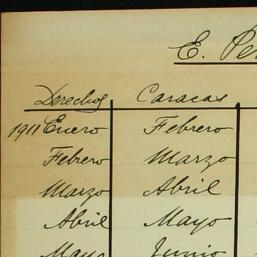 E. Pe
Derechos Caracas
1911 Enero Febrero
Febrero Marzo
Marzo Abril
Abril Mayo
Mayo Junio